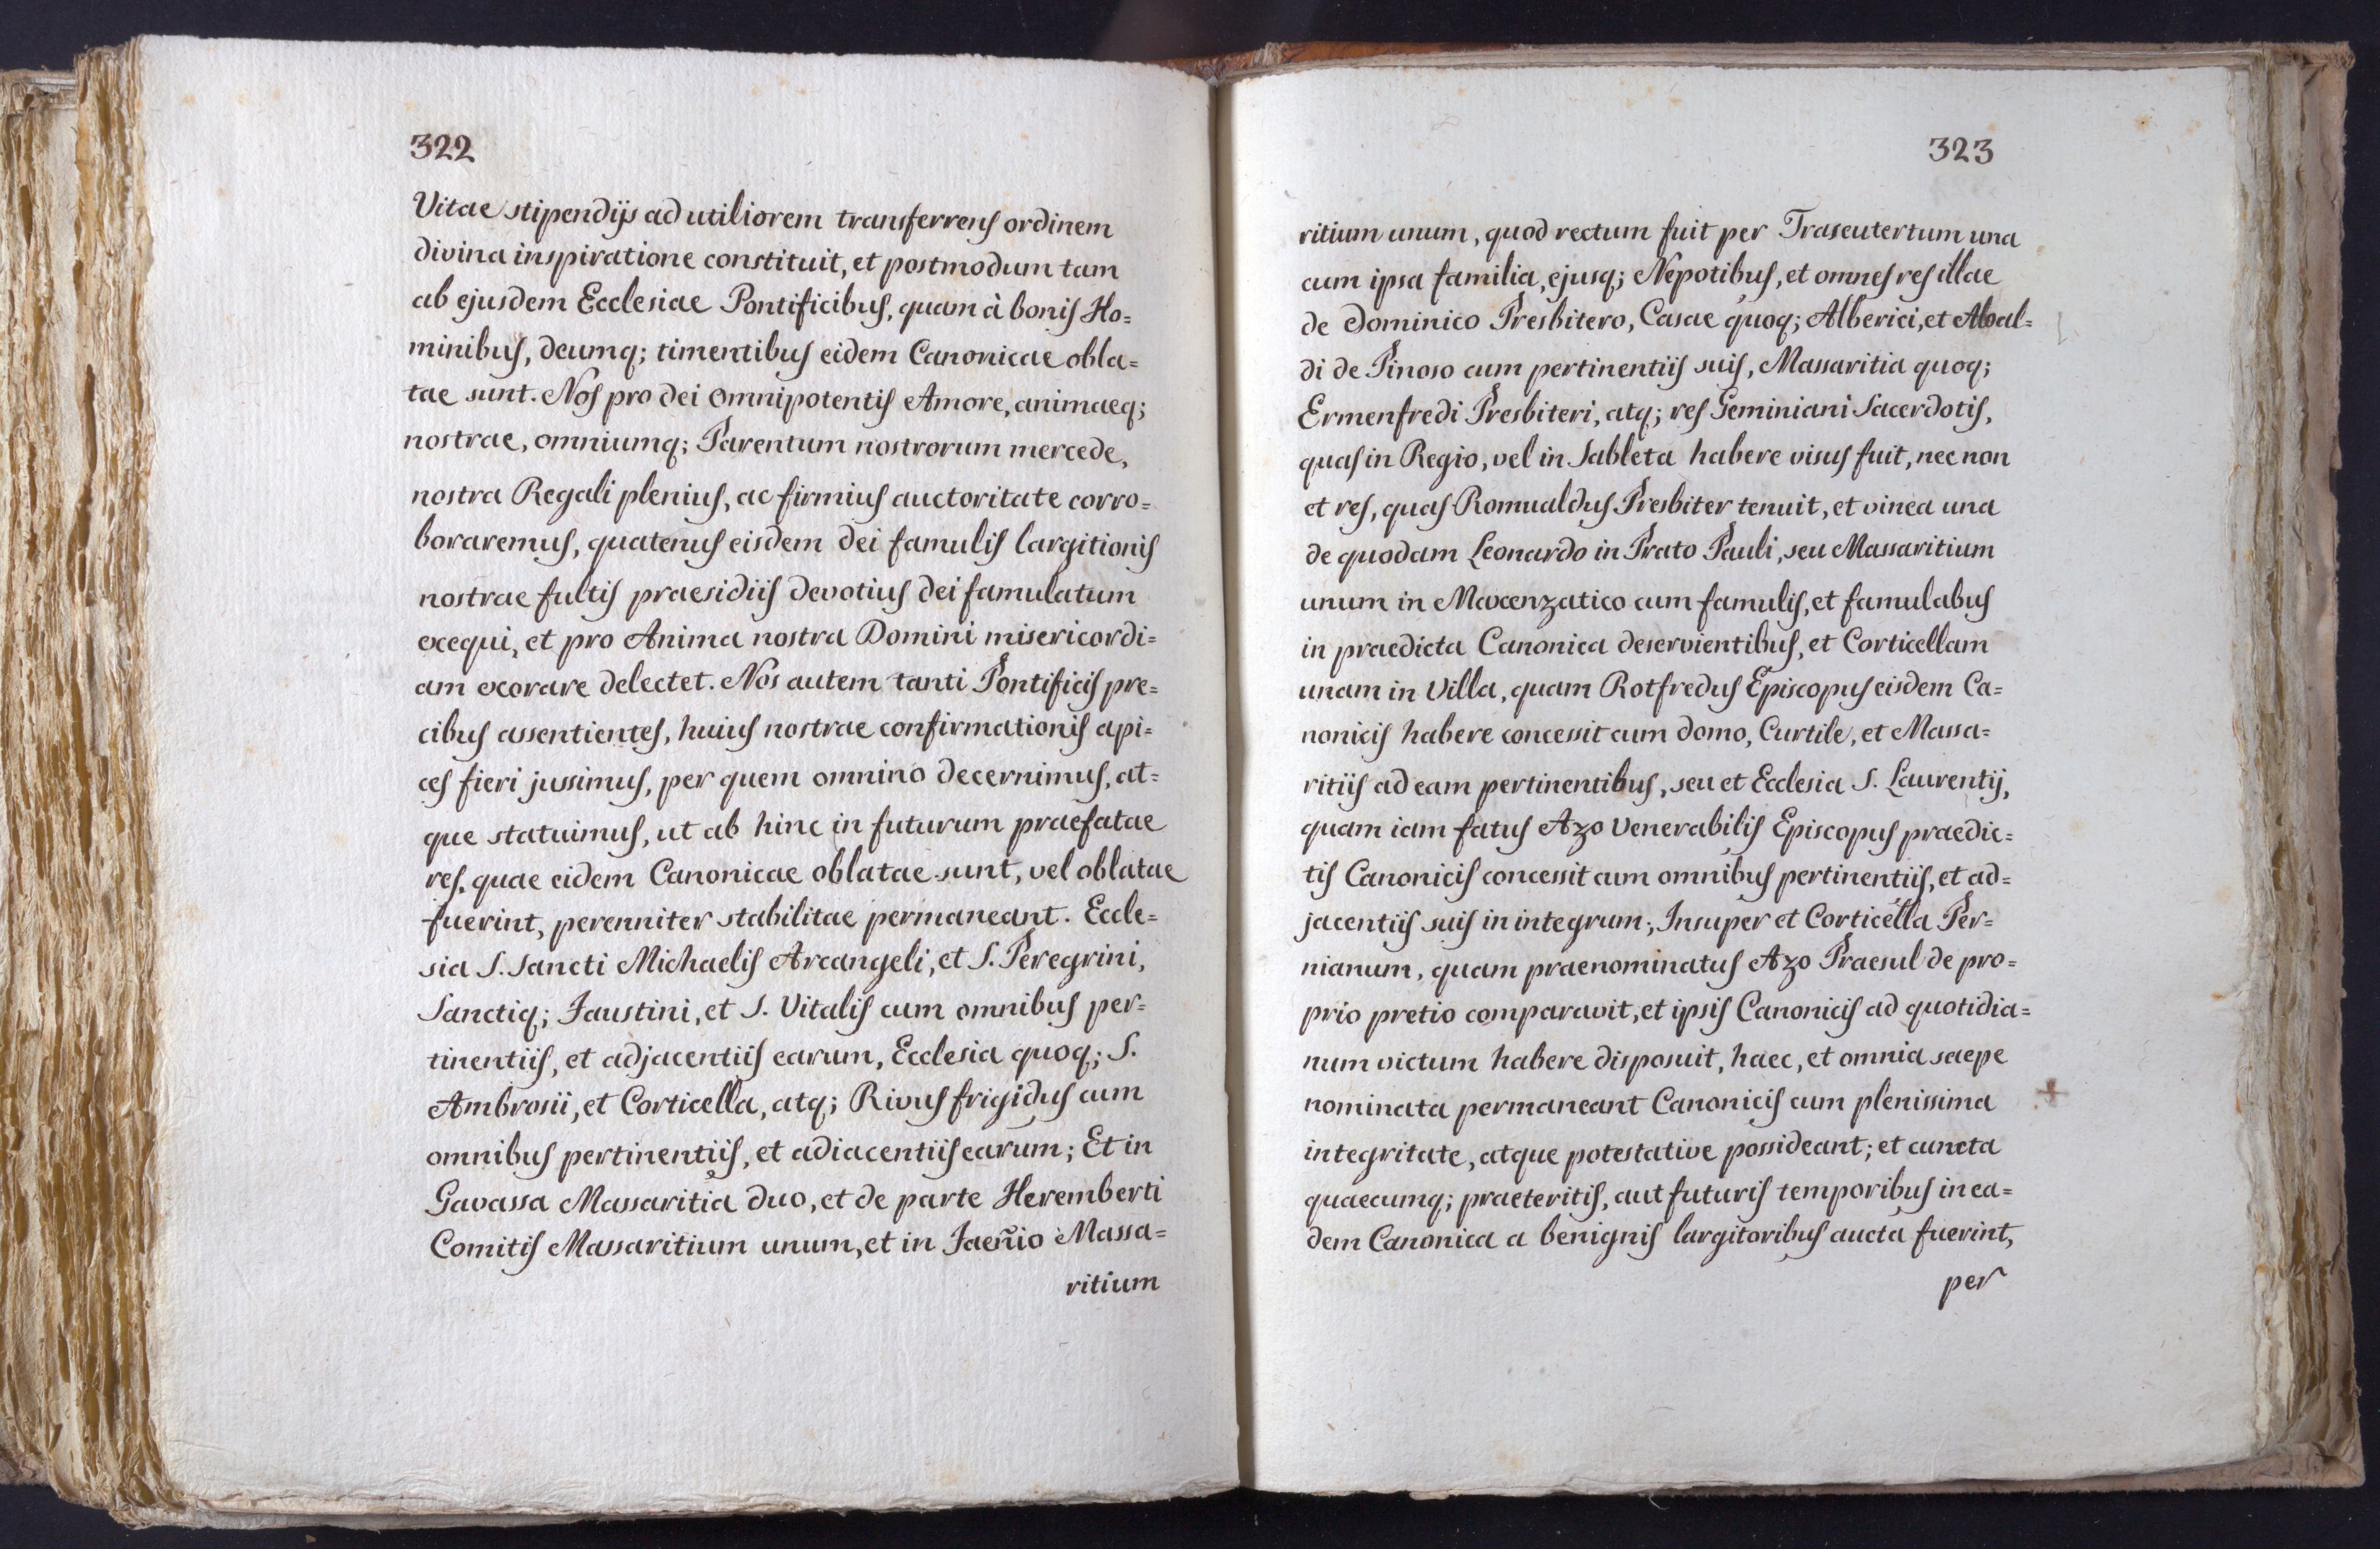 322
Vitae stipendijs ad utiliorem transferrens ordinem
divina inspiratione constituit, et postmodum tam
ab ejusdem Ecclesiae Pontificibus, quam à bonis Ho=
minibus, deumq; timentibus eidem Canonicae obla=
tae sunt. Nos pro dei omnipotentis Amore, animaeq;
nostrae, omniumq; Parentum nostrorum mercede,
nostra Regali plenius, ac firmius auctoritate corro=
boraremus, quatenus eisdem dei famulis largitionis
nostrae fultis praesidiis devotius dei famulatum
exequi, et pro Anima nostra Domini misericordi=
am exorare delectet. Nos autem tanti Pontificis pre=
cibus assentientes, huius nostrae confirmationis api=
ces fieri jussimus, per quem omnino decernimus, at=
que statuimus, ut ab hinc in futurum praefatae
res. quae eidem Canonicae oblatae sunt, vel oblatae
fuerint, perenniter stabilitae permaneant. Eccle=
sia S. Sancti Michaelis Arcangeli, et S. Peregrini,
Sanctiq; Faustini, et S. Vitalis cum omnibus per=
tinentiis, et adjacentiis earum, Ecclesia quoq; S.
Ambrosii, et Corticella, atq; Rivus frigidus cum
omnibus pertinentiis, et adiacentiis earum; Et in
Gavassa Massaritia duo, et de parte Heremberti
Comitis Massaritium unum, et in Faeñio Massa=
ritium
323
ritium unum, quod rectum fuit per Traseutertum una
cum ipsa familia, ejusq; Nepotibus, et omnes res illae
de Dominico Presbitero, Casae quoq; Alberici, et
di de Pinoso cum pertinentiis suis, Massaritia quoq;
Ermenfredi Presbiteri, atq; res Geminiani Sacerdotis,
quas in Regio, vel in Sableta habere visus fuit, nec non
et res, quas Romualdus Presbiter tenuit, et vinea una
de quodam Leonardo in Prato Pauli, seu Massaritium
unum in Maxenzatico cum famulis, et famulabus
in praedicta Canonica deservientibus, et Corticellam
unam in Villa, quam Rotfredus Episcopus eisdem Ca=
nonicis habere concessit cum domo, Curtile, et Massa=
ritiis ad eam pertinentibus, seu et Ecclesia S. Laurentij,
quam iam fatus Azo Venerabilis Episcopus praedic=
tis Canonicis concessit cum omnibus pertinentiis, et ad=
jacentiis suis in integrum; Insuper et Corticella Per=
nianum, quam praenominatus Azo Praesul de pro=
prio pretio comparavit, et ipsis Canonicis ad quotidia=
num victum habere disposuit, haec, et omnia saepe
nominata permaneant Canonicis cum plenissima
integritate, atque potestative possideant; et cuncta
quaecumq; praeteritis, aut futuris temporibus in ea=
dem Canonica a benignis largitoribus aucta fuerint,
per